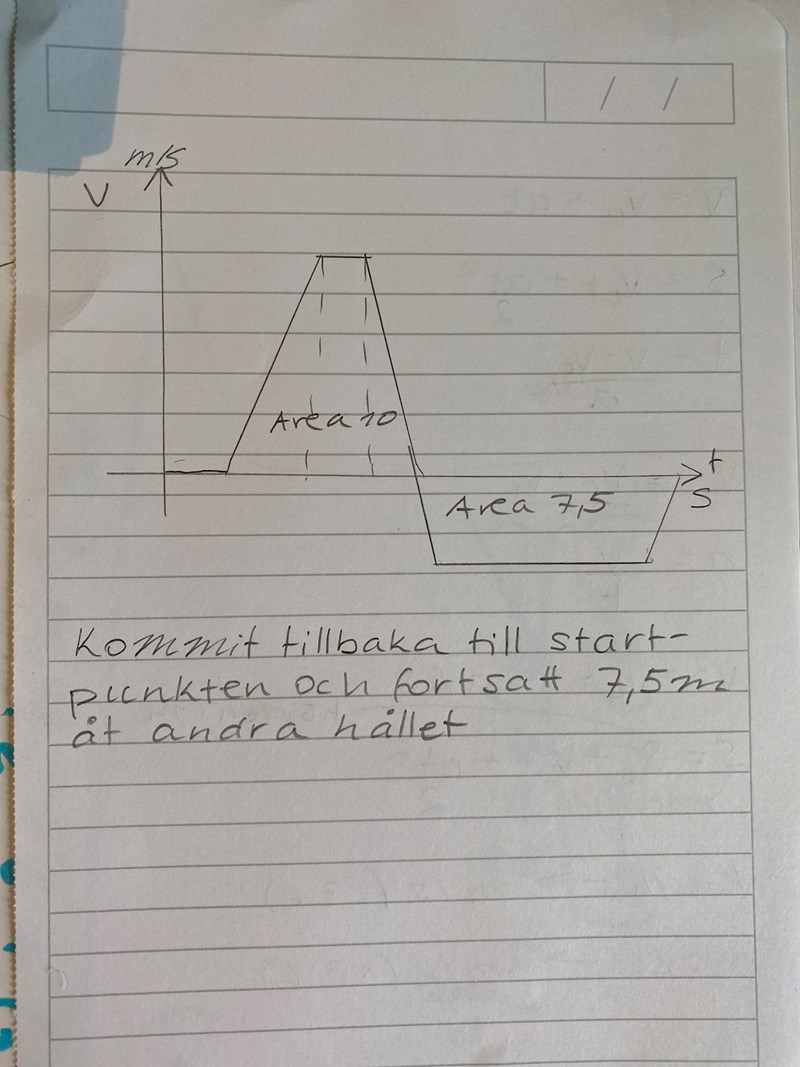 m/s
V
Area 10
t
Area 7,5
S
Kommit tillbaka till start-
punkten och fortsatt 7,5m
åt andra hållet